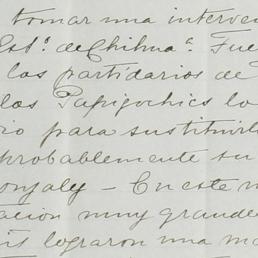 tomar una interven
Est°. de Chihua ª. Fue
los partidarios de
los Papigochics lo
io para sustituirl
probablemente su
onzalez - En este m
tación muy grande
is lograron una ma